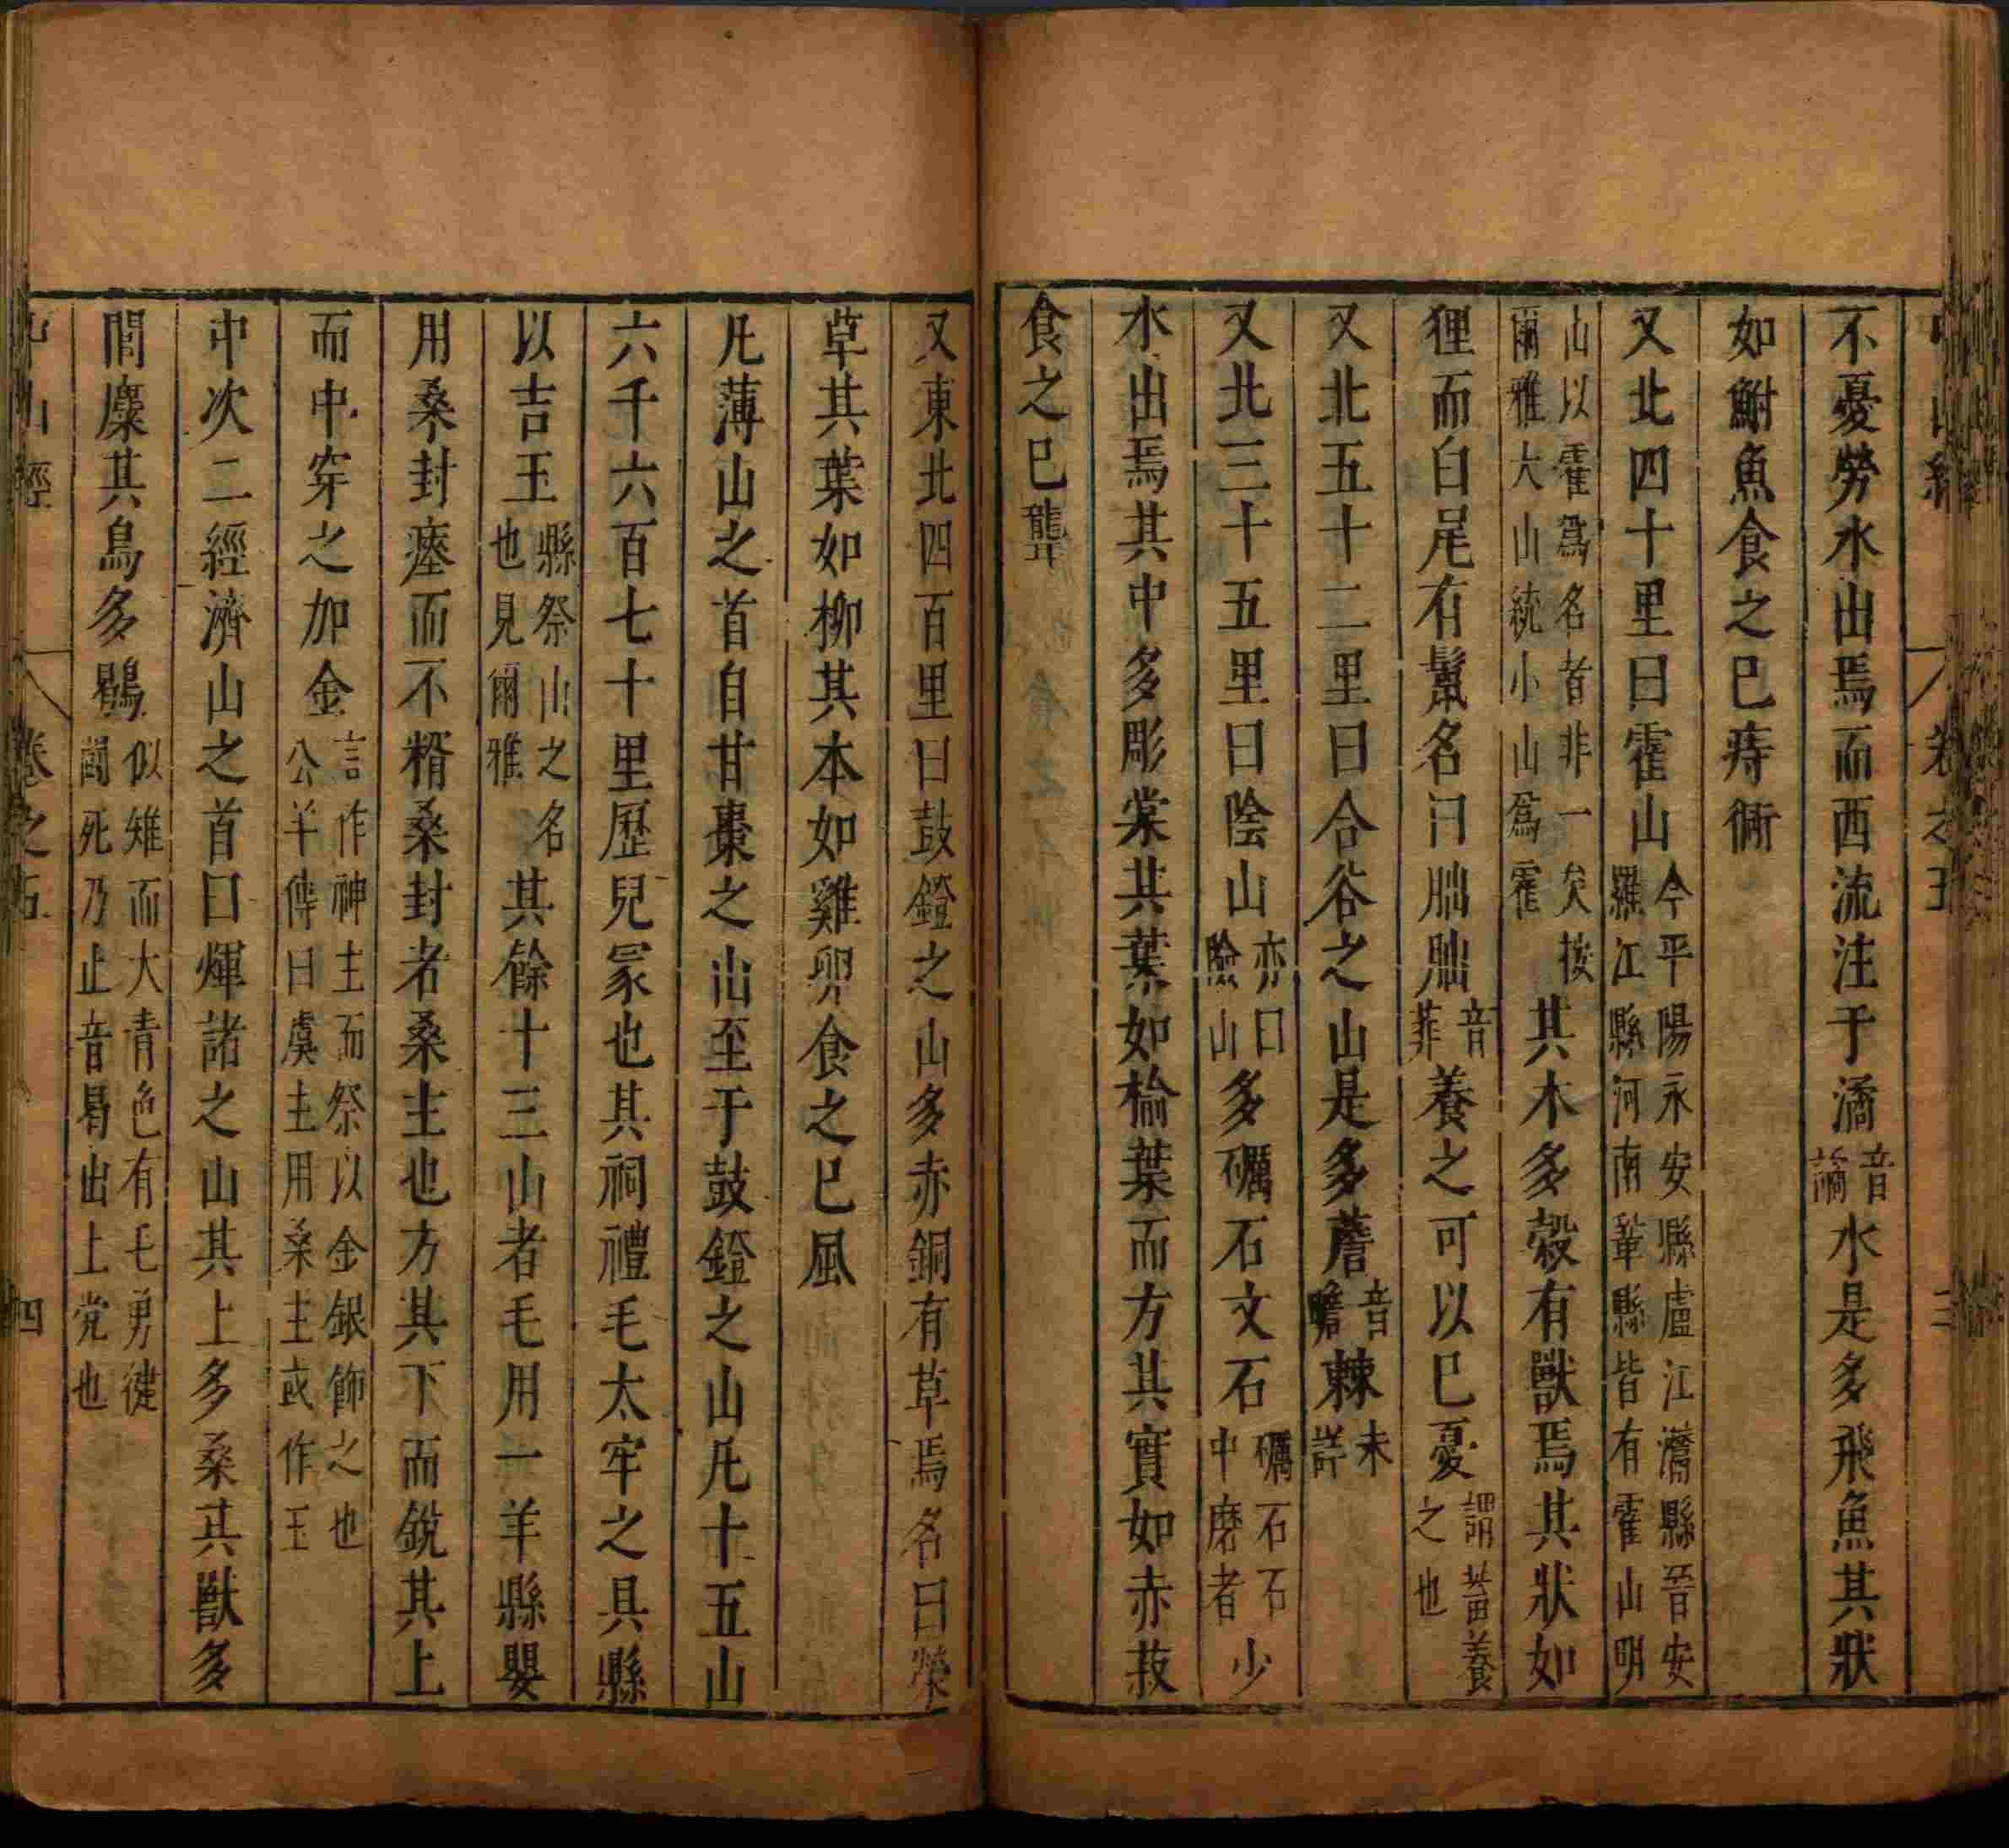 不憂勞水出焉而西流注于潏音譎水是多飛魚其狀
如鮒魚食之巳痔衕
又北四十里曰霍山今平陽永安縣盧江灊縣晉安羅江縣河南鞏縣皆有霍山明
山以霍爲名者非一矣按爾雅大山統小山爲霍其木多榖有獸焉其狀如
狸而白尾有鬣名曰朏朏音菲養之可以巳憂謂畜養之也
又北五十二里曰合谷之山是多薝音瞻棘未詳
又北三十五里曰陰山亦曰險山多礪石文石礪石石中磨者少
水出焉其中多彫棠其葉如榆葉而方其實如赤菽
食之巳聾
又東北四百里曰鼓鐙之山多赤銅有草焉名曰榮
草其葉如柳其本如雞卵食之巳風
凡薄山之首自甘棗之山至于鼓鐙之山凡十五山
六千六百七十里歷兒冢也其祠禮毛太牢之具縣
以吉玉縣祭山之名也見爾雅其餘十三山者毛用一羊縣嬰
用桑封瘞而不糈桑封者桑主也方其下而銳其上
而中穿之加金言作神主而祭以金銀飾之也公羊傳曰虞主用桑主或作玉
中次二經濟山之首曰煇諸之山其上多桑其獸多
閭麋其鳥多鶡似雉而大青色有毛勇健鬭死乃止音曷出上党也
中山經 卷之五 四